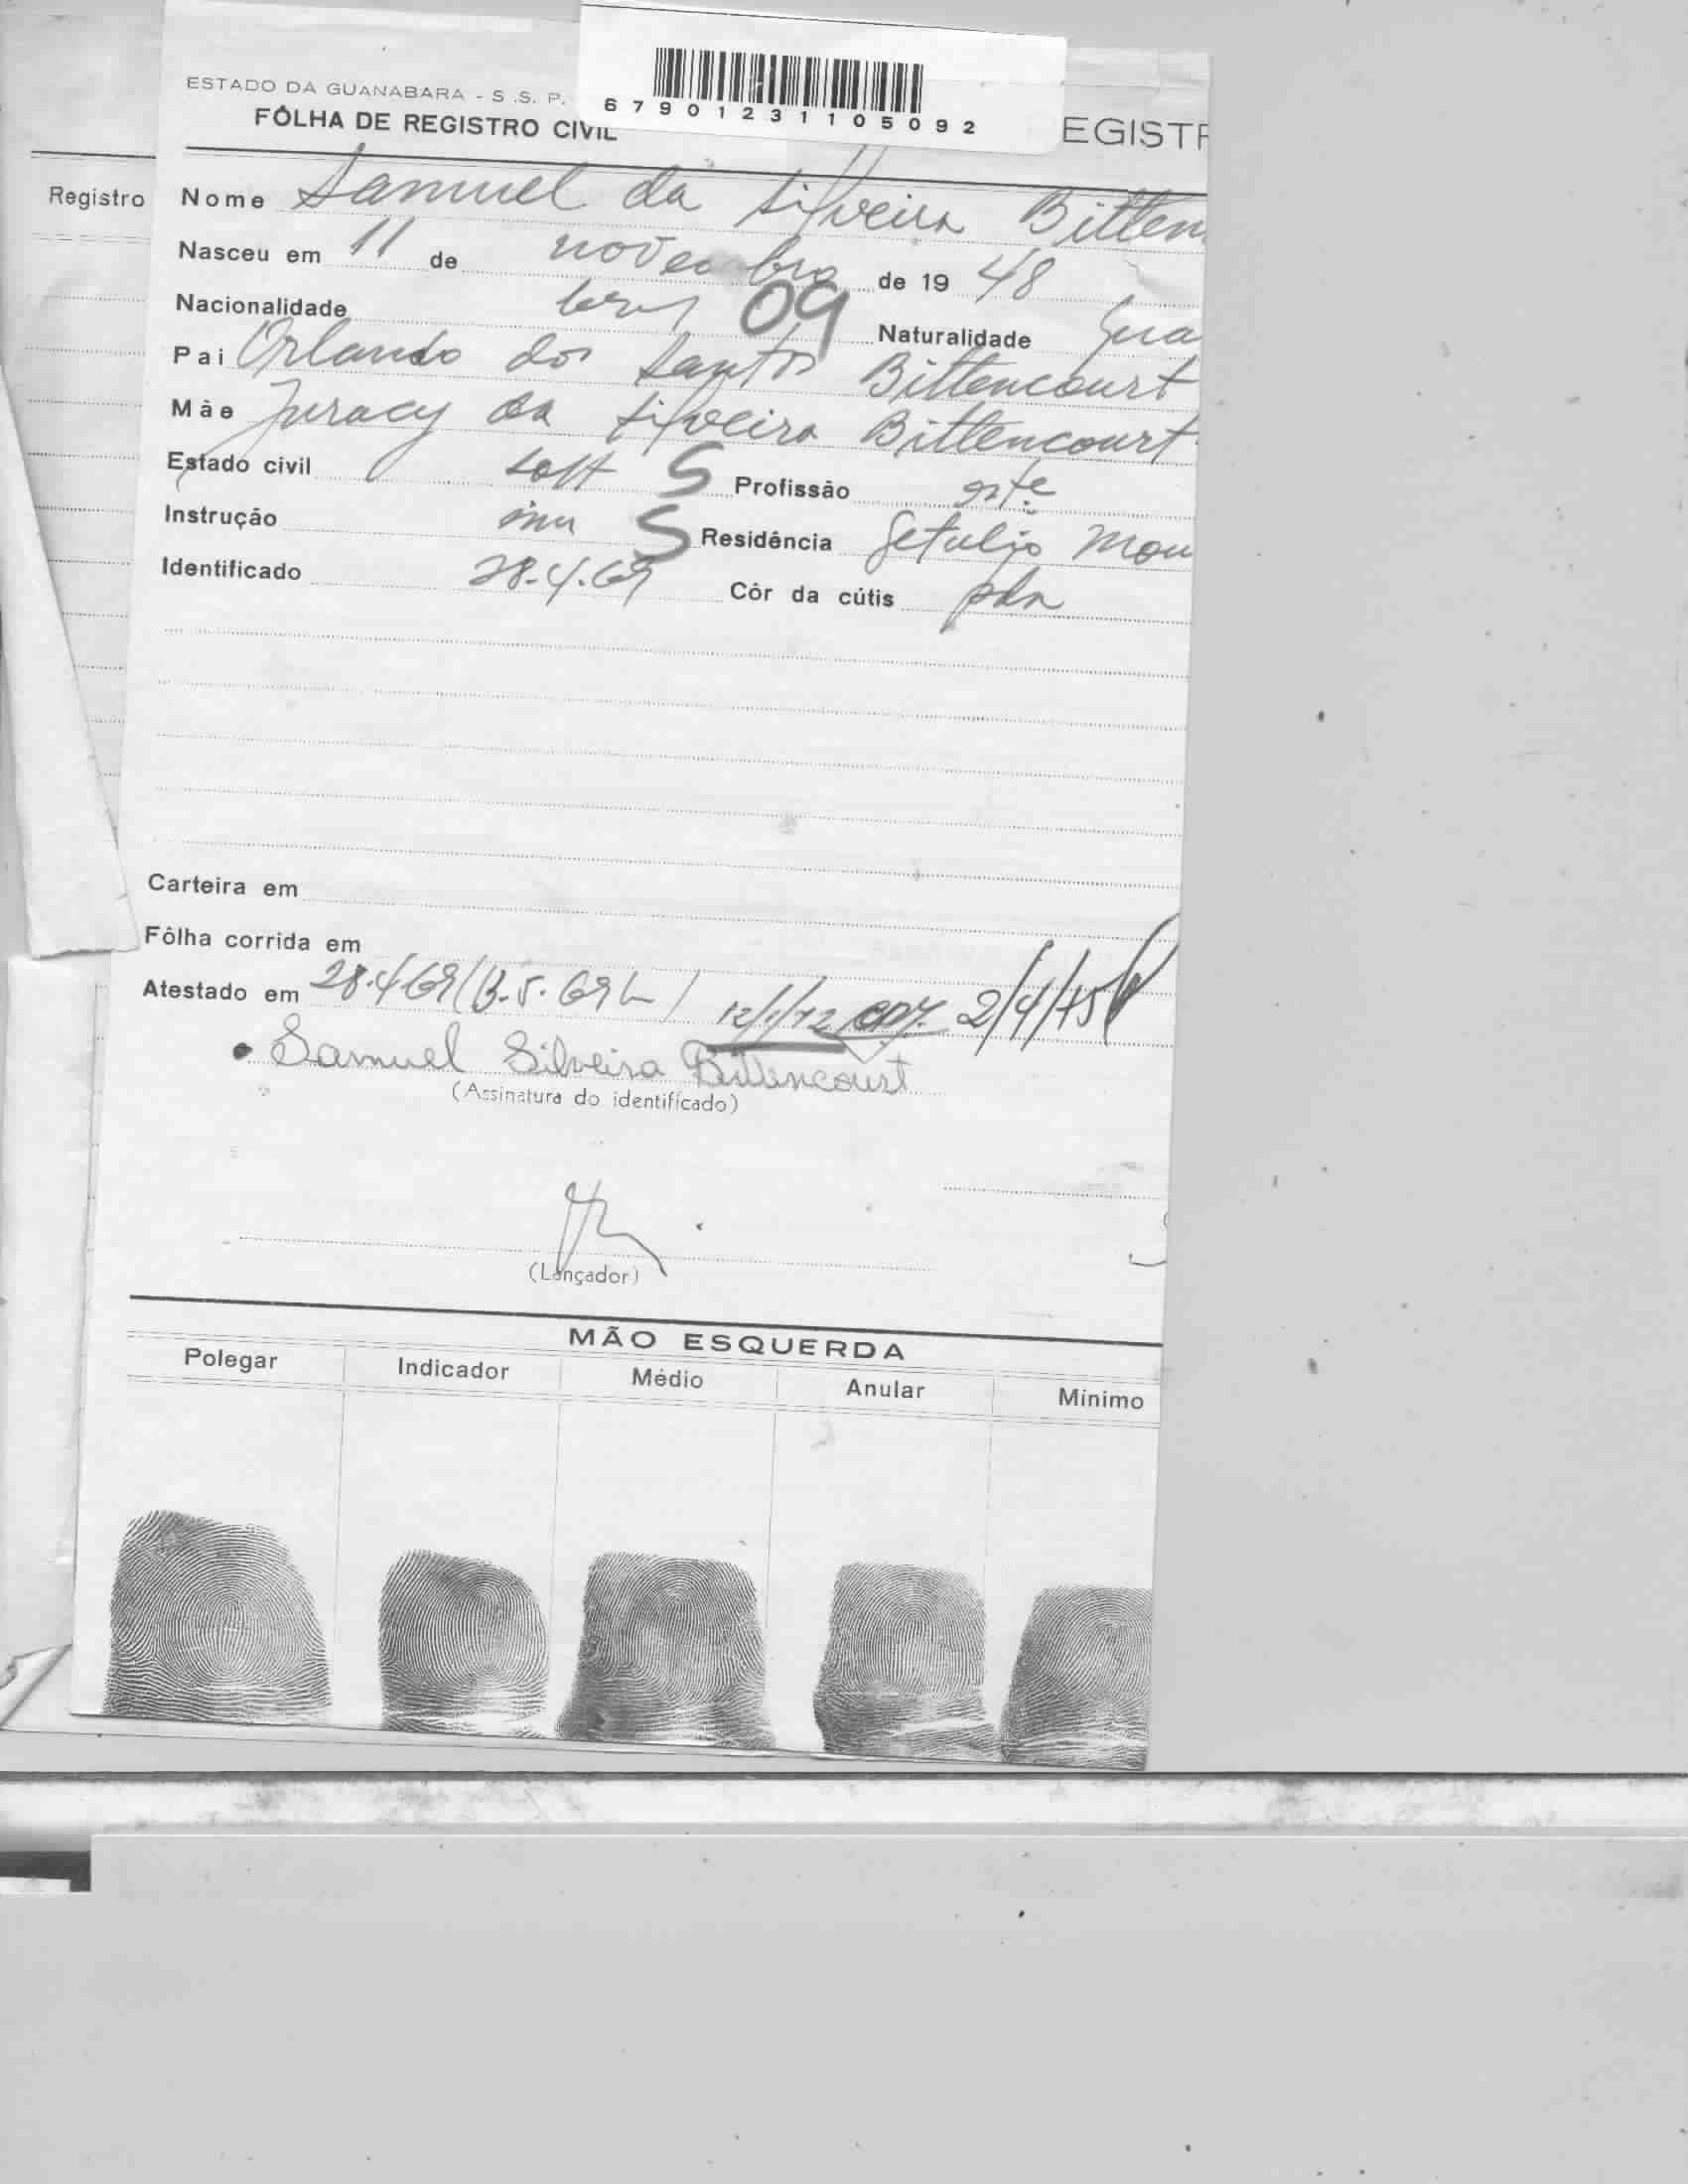 6 7 9 0 1 2 3 1 1 0 5 0 9 2
ESTADO DA GUANABARA - S .S. P.
FÔLHA DE REGISTRO CIVIL
EGISTR
Registro
Nome Samuel da Silveira Bitten
Nasceu em 11 de novembro de 19 48
Nacionalidade bras 09 Naturalidade Gua
Pai Orlando dos Santos Bittencourt
Mãe Juracy da Silveira Bittencourt
Estado civil solt S Profissão
Instrução S Residência Getulio Mou
Identificado 28.4.69 Côr da cútis pda
Carteira em
Fôlha corrida em
Atestado em 28.4.69 / 12/1/72 2/4/75
Samuel Silveira Bittencourt
(Assinatura do identificado)
(Lançador)
MÃO ESQUERDA
Polegar Indicador Médio Anular Mínimo